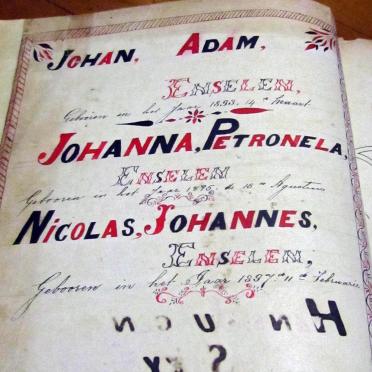 JOHAN, ADAM,
ENSELEN,
Geboren in het Jaar 1893, 14 Maart.
JOHANNA, PETRONELA,
ENSELEN
Geboren in het Jaar 1895 de 16 Agustus
NICOLAS, JOHANNES,
ENSELEN,
Gebooren in het Jaar 1897 11 Februarie